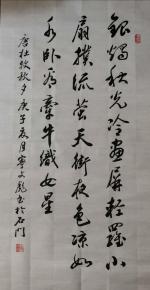 銀燭秋光冷畫屏輕羅小
扇撲流螢天街夜色涼如
水卧看牽牛織女星
唐杜牧秋夕庚子夏月寧文彪書於石門